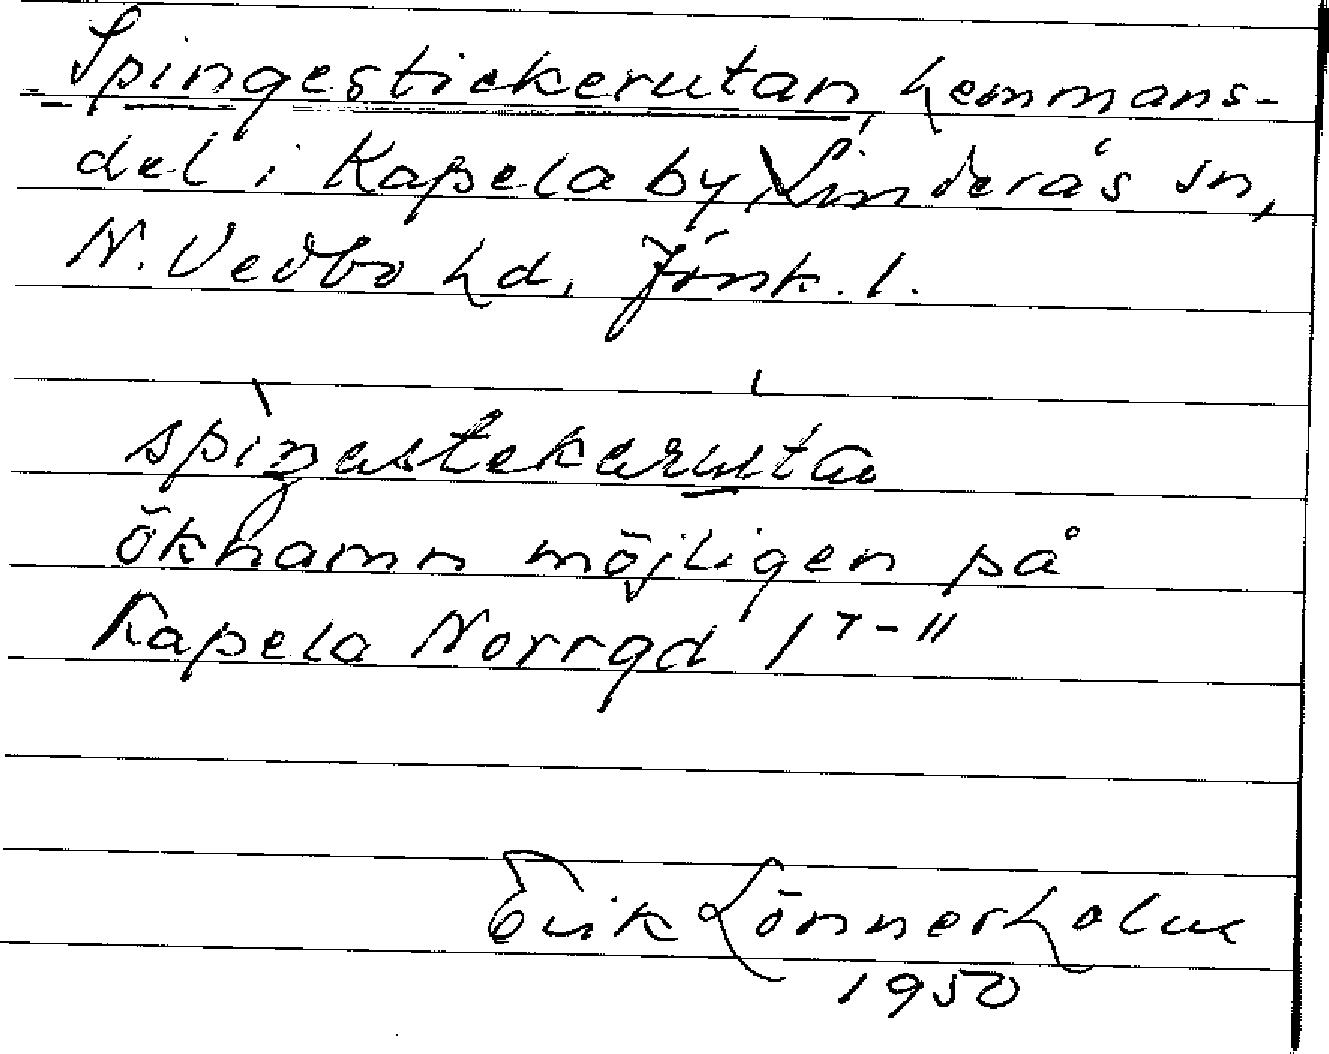 Spingestickerutan, hemmans-
del i Kapela by, Linderås sn,
N. Vedbo hd, Jönk. l.
spiŋastekaruta
öknamn möjligen på
Kapela Norrgd 1⁷⁻¹¹
Erik Lönnerholm
1950